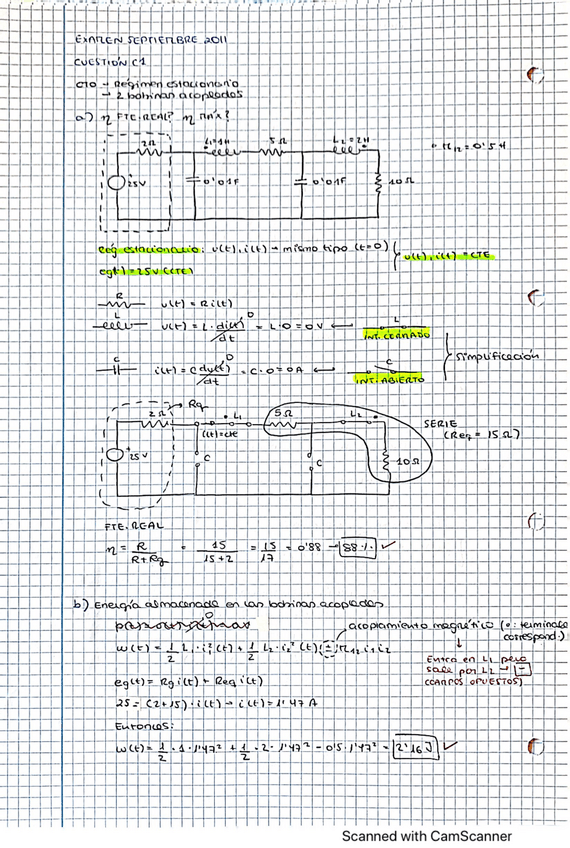 EXAMEN SEPTIEMBRE 2011
CUESTIÓN C1
CTO → Régimen estacionario
→ 2 bobinas acopladas
a) η FTE.REAL? η máx?
2Ω L1=1H 5Ω L2=2H
25V 0'01F 0'01F 10Ω
M12=0'5H
Rég. estacionario: v(t), i(t) → mismo tipo (t=0) } v(t), i(t)=CTE
eg(t)=25V (CTE)
R v(t)=Ri(t)
L v(t)=L·di(t)/dt = L·0=0V ← L
INT.CERRADO
C i(t)=C dv(t)/dt = C·0=0A ← C
INT.ABIERTO
Simplificación
2Ω Rg L1 5Ω L2
i(t)=cte
SERIE
(Req = 15Ω)
25V C C 10Ω
FTE.REAL
η = R/(R+Rg) = 15/(15+2) = 15/17 = 0'88 → 88% ✓
b) Energía almacenada en las bobinas acopladas
acoplamiento magnético (•: terminales correspond.)
w(t)=1/2 L1·i1²(t)+1/2 L2·i2²(t) (±) M12 i1 i2
Entra en L1 pero
sale por L2 → -
(CAMPOS OPUESTOS)
eg(t)=Rg i(t)+Req i(t)
25=(2+15)·i(t) → i(t)=1'47A
Entonces:
w(t)=1/2·1·1'47²+1/2·2·1'47²-0'5·1'47²=2'16J ✓
Scanned with CamScanner